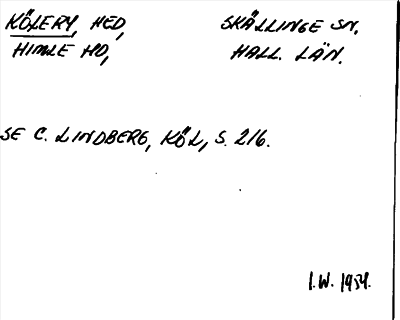 KÖLERY, HED, SKÄLLINGE SN,
HIMLE HD, HALL. LÄN.
SE C. LINDBERG, KÖL, S. 216.
I.W. 1934.